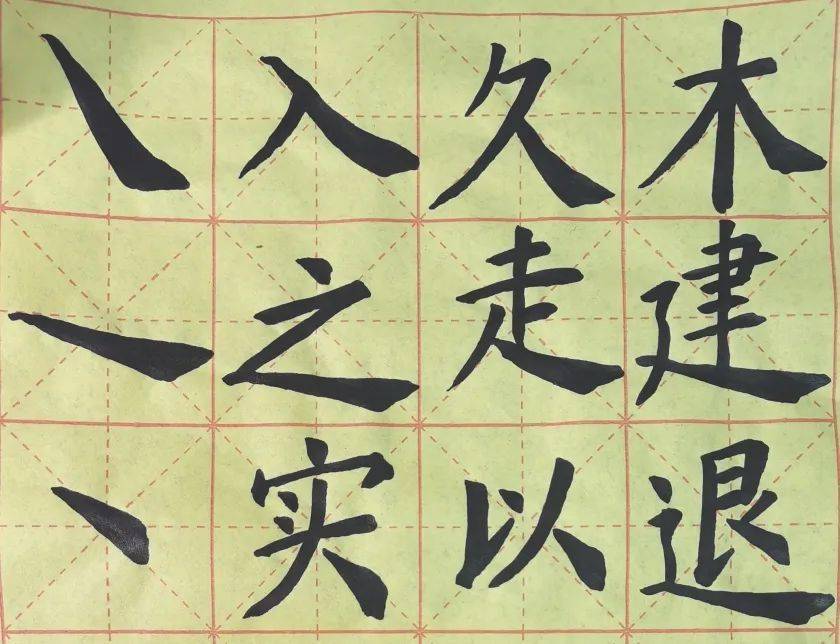 ㇏ 入 久 木
㇏ 之 走 建
丶 实 以 退